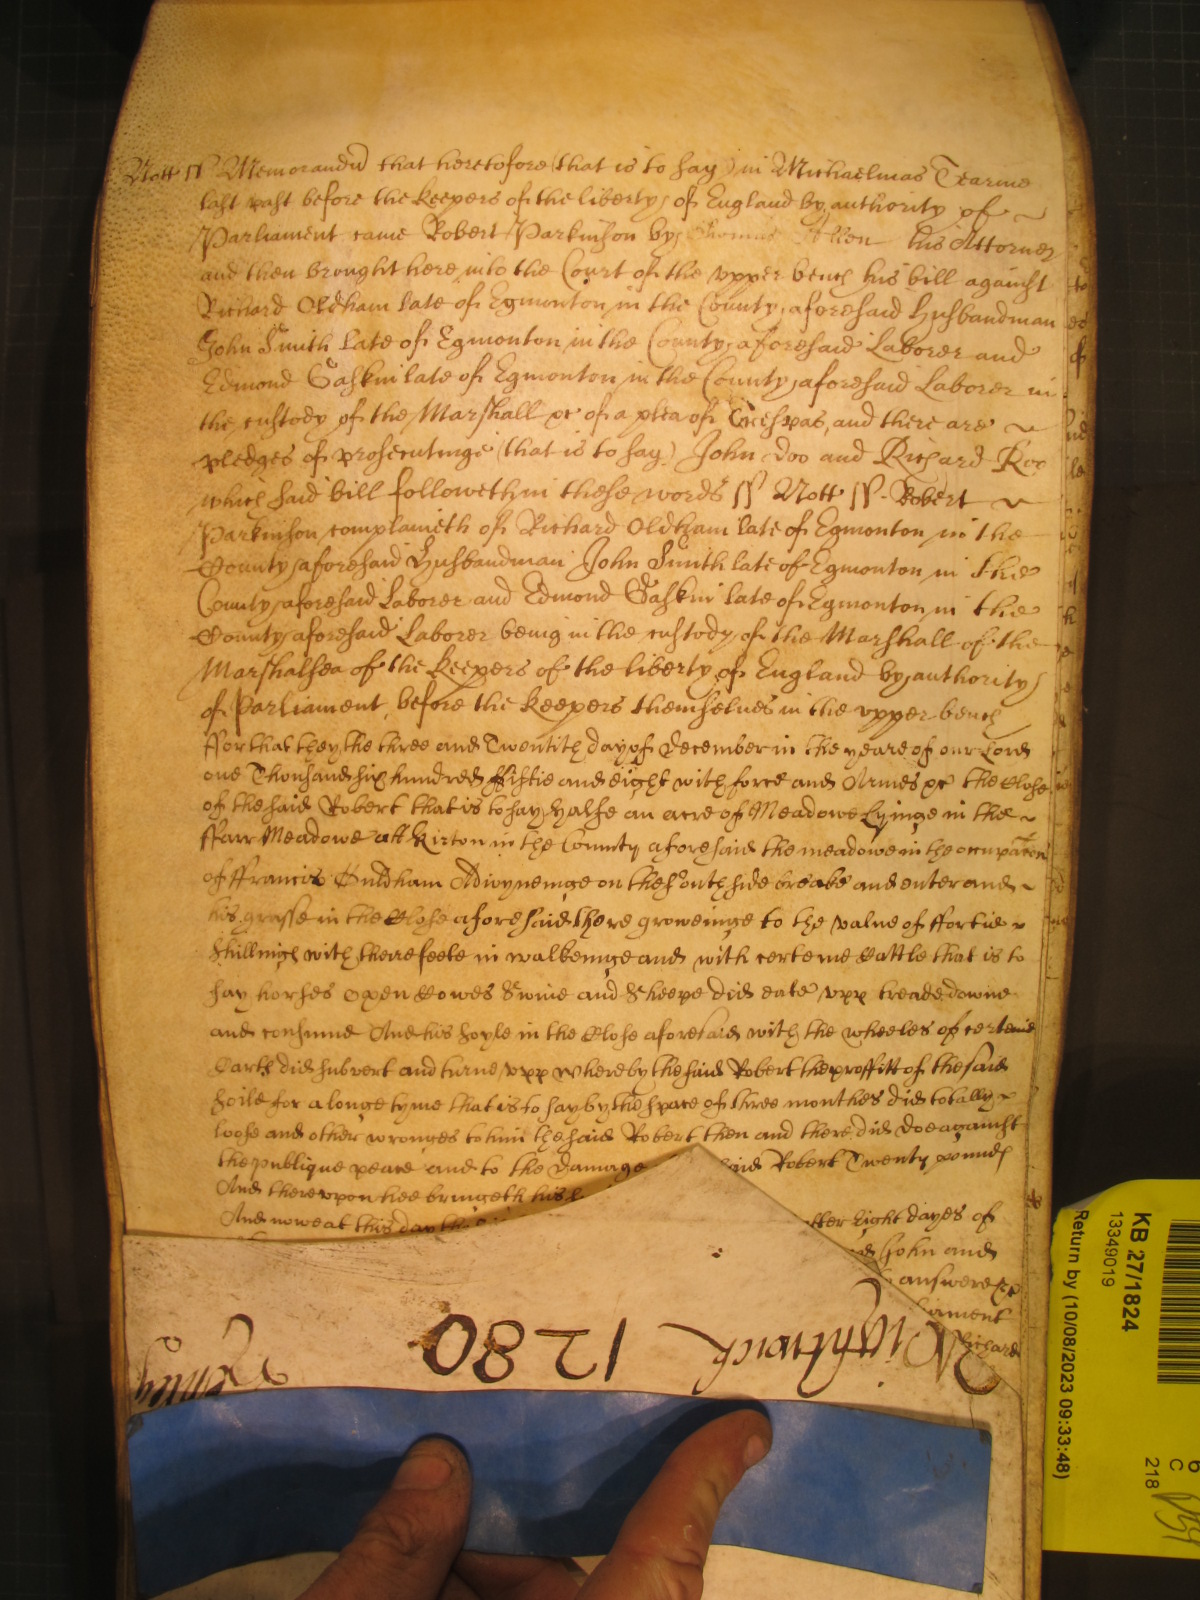 Nott ss Memorandu that heretofore (that is to say) in Michaelmas Tearme
last past before the keepers of the liberty of England by authority of
Parliament came Robert Parkinson by Thomas Allen his Attorney
and then brought here into the Court of the upper bench his bill against
Richard Oldham late of Egmonton in the County aforesaid Husbandman
John Smith late of Egmonton in the County aforesaid Laborer and
Edmond Gaskin late of Egmonton in the County aforesaid Laborer in
the custody of the Marshall &c of a plea of Trespas, and there are
pledges of prosecutinge (that is to say) John Doo and Richard Roo
which said bill followeth in these words ss Nott ss Robert
Parkinson complaineth of Richard Oldham late of Egmonton in the
County aforesaid Husbandman John Smith late of Egmonton in the
County aforesaid Laborer and Edmond Gaskin late of Egmonton in the
County aforesaid Laborer being in the custody of the Marshall of the
Marshalsea of the keepers of the liberty of England by authority
of Parliament, before the keepers themselves in the upper bench
ffor that they the three and Twentith day of December in the yeare of our Lord
one Thousand six hundred fiftie and eight with force and Armes &c the Close
of the said Robert that is to say halfe an acre of Meadowe Lyinge in the
ffarr Meadowe att Kirton in the County aforesaid the meadowe in the occupacon
of ffrancis Ouldham Adioyneinge on the South side breake and enter and
his grasse in the Close aforesaid there groweinge to the value of ffortie
shillings with theire feete in walkeinge and with certeine Cattle that is to
say horses Oxen Cowes Swine and Sheepe did eate upp treade downe
and consume And his soyle in the Close aforesaid with the wheeles of certeine
Carts did subvert and turne upp whereby the said Robert the proffitt of the said
soile for a longe tyme that is to say by the space of three monthes did totally
loose and other wronges to him the said Robert then and there did doe against
the publique peace and to the damage said Robert Twenty pounds
And thereupon hee bringeth his
And now at this day th after Eight dayes of
John and
answere &c
Richard
Wightwick 1280
KB 27/1824
13349019
Return by (10/08/2023 09:33:48)
6
C
218